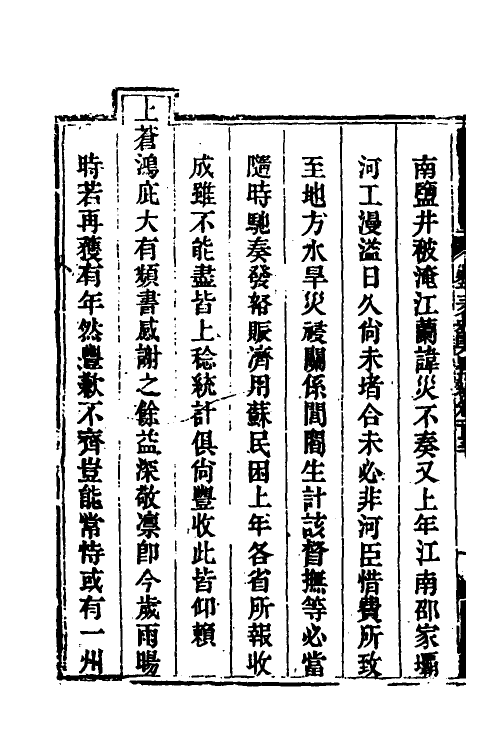 南鹽井被淹江蘭諱災不奏又上年江南邵家壩
河工漫溢日久尙未堵合未必非河臣惜費所致
至地方水旱災祲關係閭閻生計該督撫等必當
隨時馳奏發帑賑濟用蘇民困上年各省所報收
成雖不能盡皆上稔統計俱尙豐收此皆仰賴
上蒼鴻庇大有頻書感謝之餘益深敬凛卽今歲雨暘
時若再獲有年然豐歉不齊豈能常恃或有一州